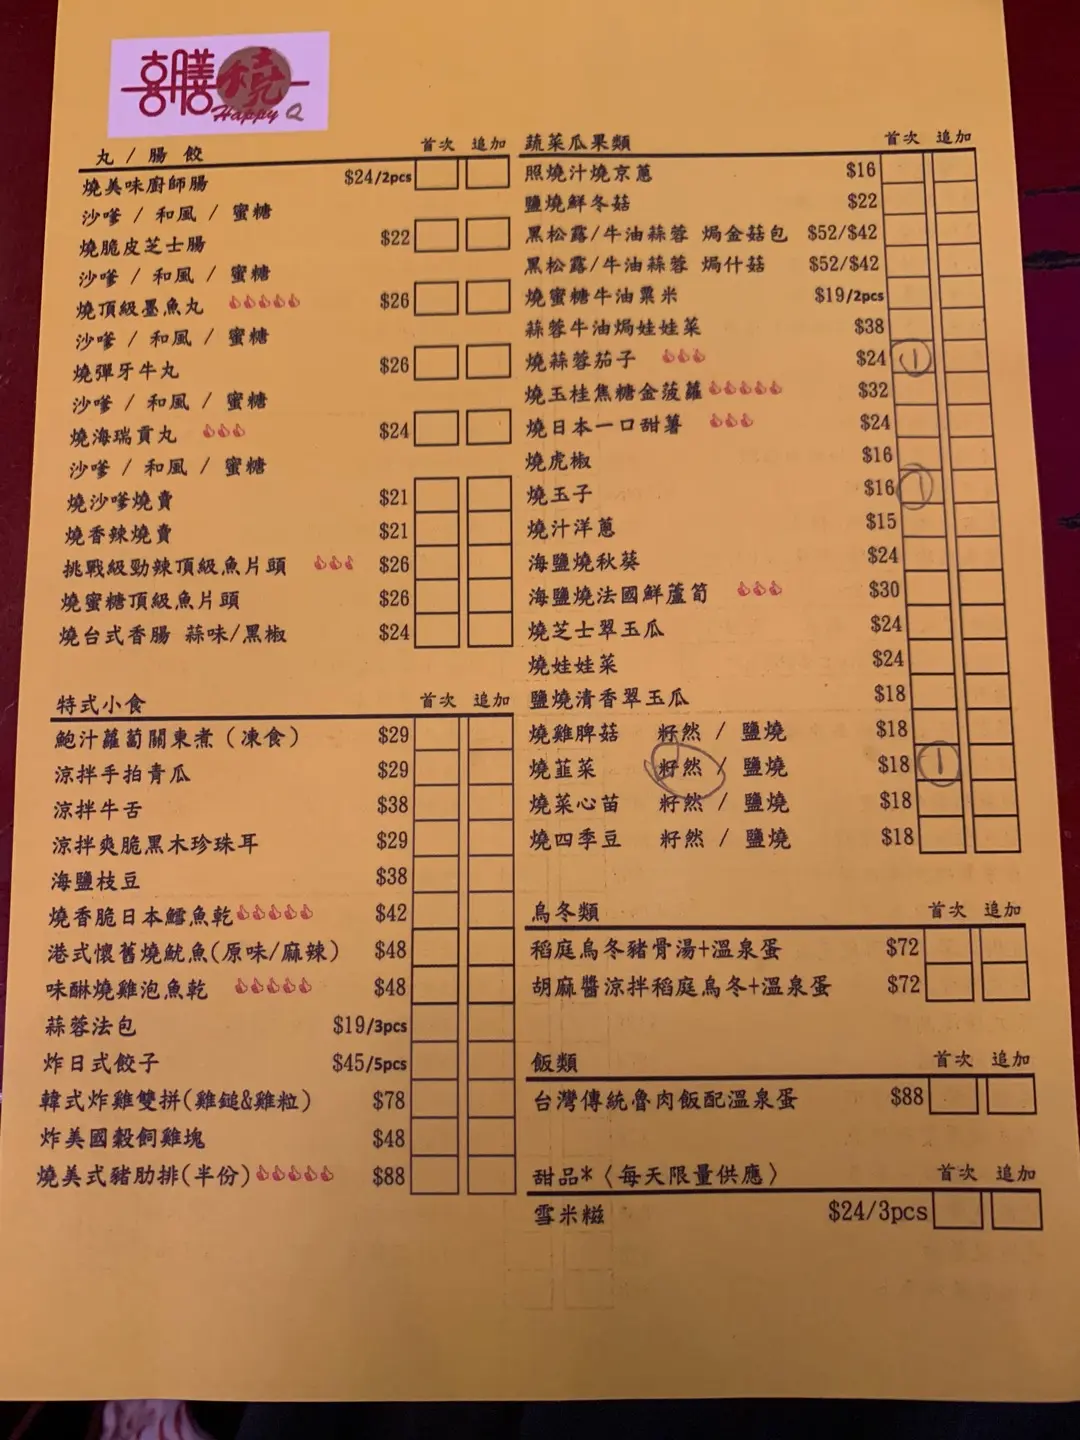 喜膳燒
Happy Q
丸 / 腸 餃 首次 追加
燒美味廚師腸 $24/2pcs
沙嗲 / 和風 / 蜜糖
燒脆皮芝士腸 $22
沙嗲 / 和風 / 蜜糖
燒頂級墨魚丸 $26
沙嗲 / 和風 / 蜜糖
燒彈牙牛丸 $26
沙嗲 / 和風 / 蜜糖
燒海瑞貢丸 $24
沙嗲 / 和風 / 蜜糖
燒沙嗲燒賣 $21
燒香辣燒賣 $21
挑戰級勁辣頂級魚片頭 $26
燒蜜糖頂級魚片頭 $26
燒台式香腸 蒜味/黑椒 $24
特式小食 首次 追加
鮑汁蘿蔔關東煮(凍食) $29
涼拌手拍青瓜 $29
涼拌牛舌 $38
涼拌爽脆黑木珍珠耳 $29
海鹽枝豆 $38
燒香脆日本鱈魚乾 $42
港式懷舊燒魷魚(原味/麻辣) $48
味醂燒雞泡魚乾 $48
蒜蓉法包 $19/3pcs
炸日式餃子 $45/5pcs
韓式炸雞雙拼(雞鎚&雞粒) $78
炸美國穀飼雞塊 $48
燒美式豬肋排(半份) $88
蔬菜瓜果類 首次 追加
照燒汁燒京蔥 $16
鹽燒鮮冬菇 $22
黑松露/牛油蒜蓉 焗金菇包 $52/$42
黑松露/牛油蒜蓉 焗什菇 $52/$42
燒蜜糖牛油粟米 $19/2pcs
蒜蓉牛油焗娃娃菜 $38
燒蒜蓉茄子 $24 1
燒玉桂焦糖金菠蘿 $32
燒日本一口甜薯 $24
燒虎椒 $16
燒玉子 $16 1
燒汁洋蔥 $15
海鹽燒秋葵 $24
海鹽燒法國鮮蘆筍 $30
燒芝士翠玉瓜 $24
燒娃娃菜 $24
鹽燒清香翠玉瓜 $18
燒雞脾菇 籽然 / 鹽燒 $18
燒韮菜 籽然 / 鹽燒 $18 1
燒菜心苗 籽然 / 鹽燒 $18
燒四季豆 籽然 / 鹽燒 $18
烏冬類 首次 追加
稻庭烏冬豬骨湯+溫泉蛋 $72
胡麻醬涼拌稻庭烏冬+溫泉蛋 $72
飯類 首次 追加
台灣傳統魯肉飯配溫泉蛋 $88
甜品*〈每天限量供應〉 首次 追加
雪米糍 $24/3pcs